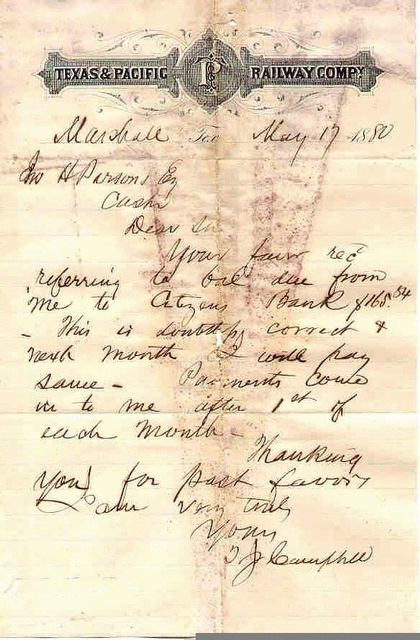 TEXAS & PACIFIC T P RAILWAY COMPY
Marshall Tex May 17 1880
Jno H Parsons Eq
Cashr
Dear Sir
Your favor rec'd
referring to bal due from
me to Citizens Bank $165.54
- This is doubtless correct &
next month I will pay
same - Payments come
in to me after 1st of
each month -
Thanking
you for past favors
I am very truly
Yours
T J Campbell